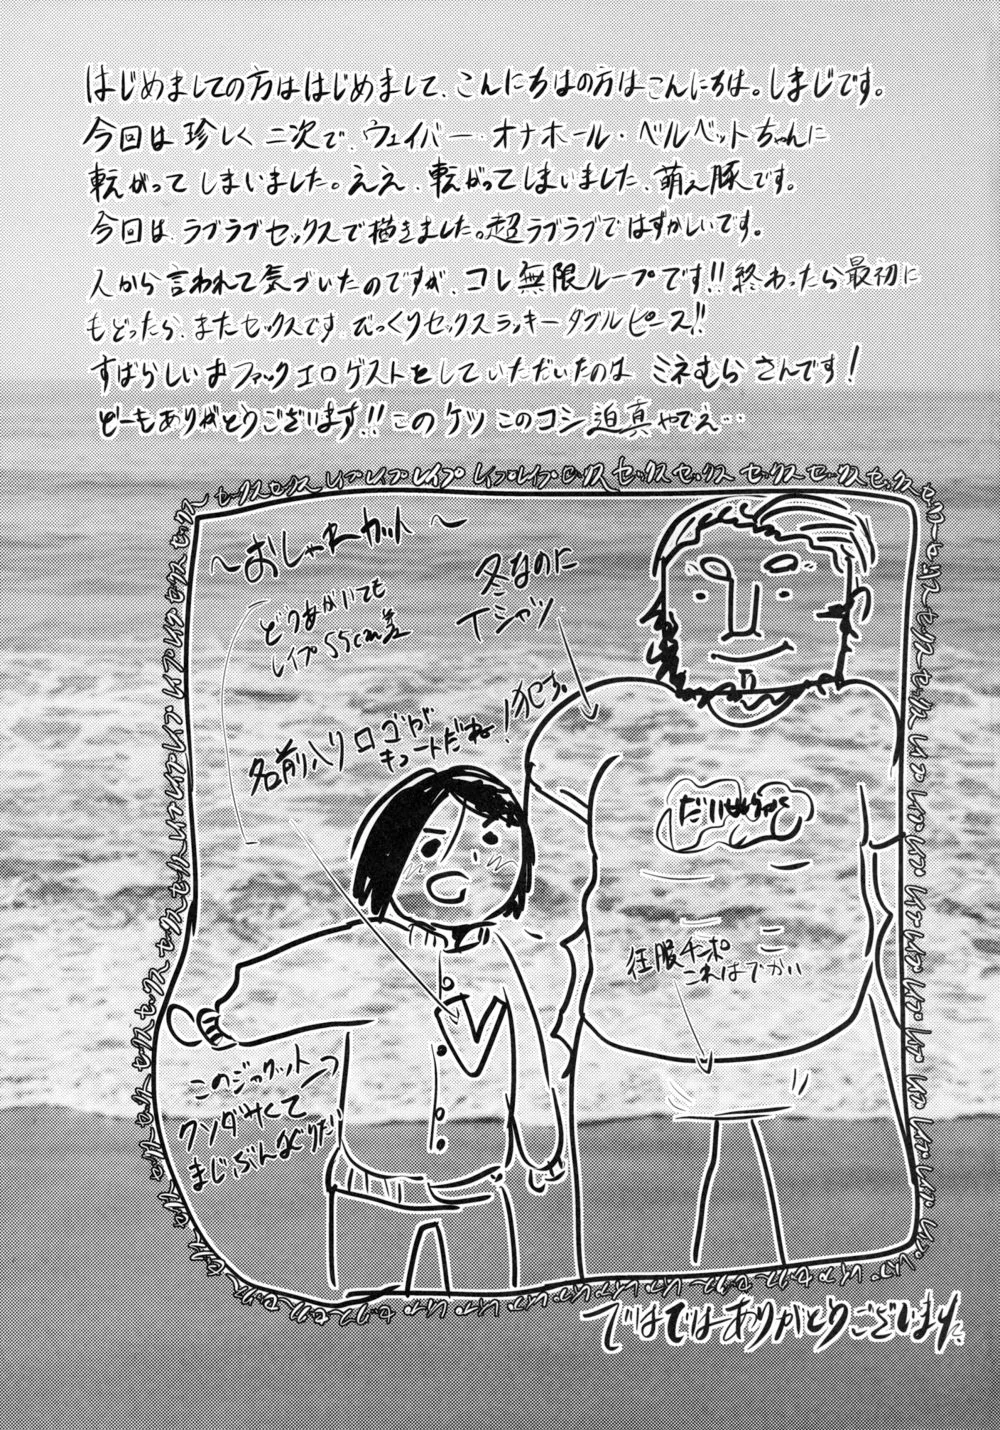 はじめましての方ははじめまして、こんにちはの方はこんにちは。しまじです。
今回は珍しく二次で、ウェイバー・オナホール・ベルベットちゃんに
転がってしまいました。ええ、転がってしまいました、萌え豚です。
今回は、ラブラブセックスで描きました。超ラブラブではずかしいです。
人から言われて気づいたのですが、コレ無限ループです!!終わったら最初に
もどったら、またセックスです、びっくりセックスラッキーダブルピース!!
すばらしいおファックエロゲストをしていただいたのは ミネむらさんです!
どーもありがとうございます!!このケツこのコシ迫真やでえ…
セックスセックス レイプレイプレイプ レイプレイプ セックス セックス セックス セックス セックス
〜おしゃれカット〜
どうあがいても
レイプ55cm差
冬なのに
Tシャツ
名前入りロゴVが
キュートだね!犯す。
征服チンポ
これはでかい
このジャケット
クソダサくて
まじぶんなぐりたい
ではではありがとうございました